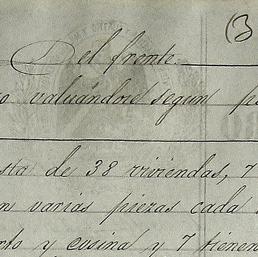 (3
Del frente
valuándose segun
de 38 viviendas, 7
varias piezas cada
y cocina y 7 tienen